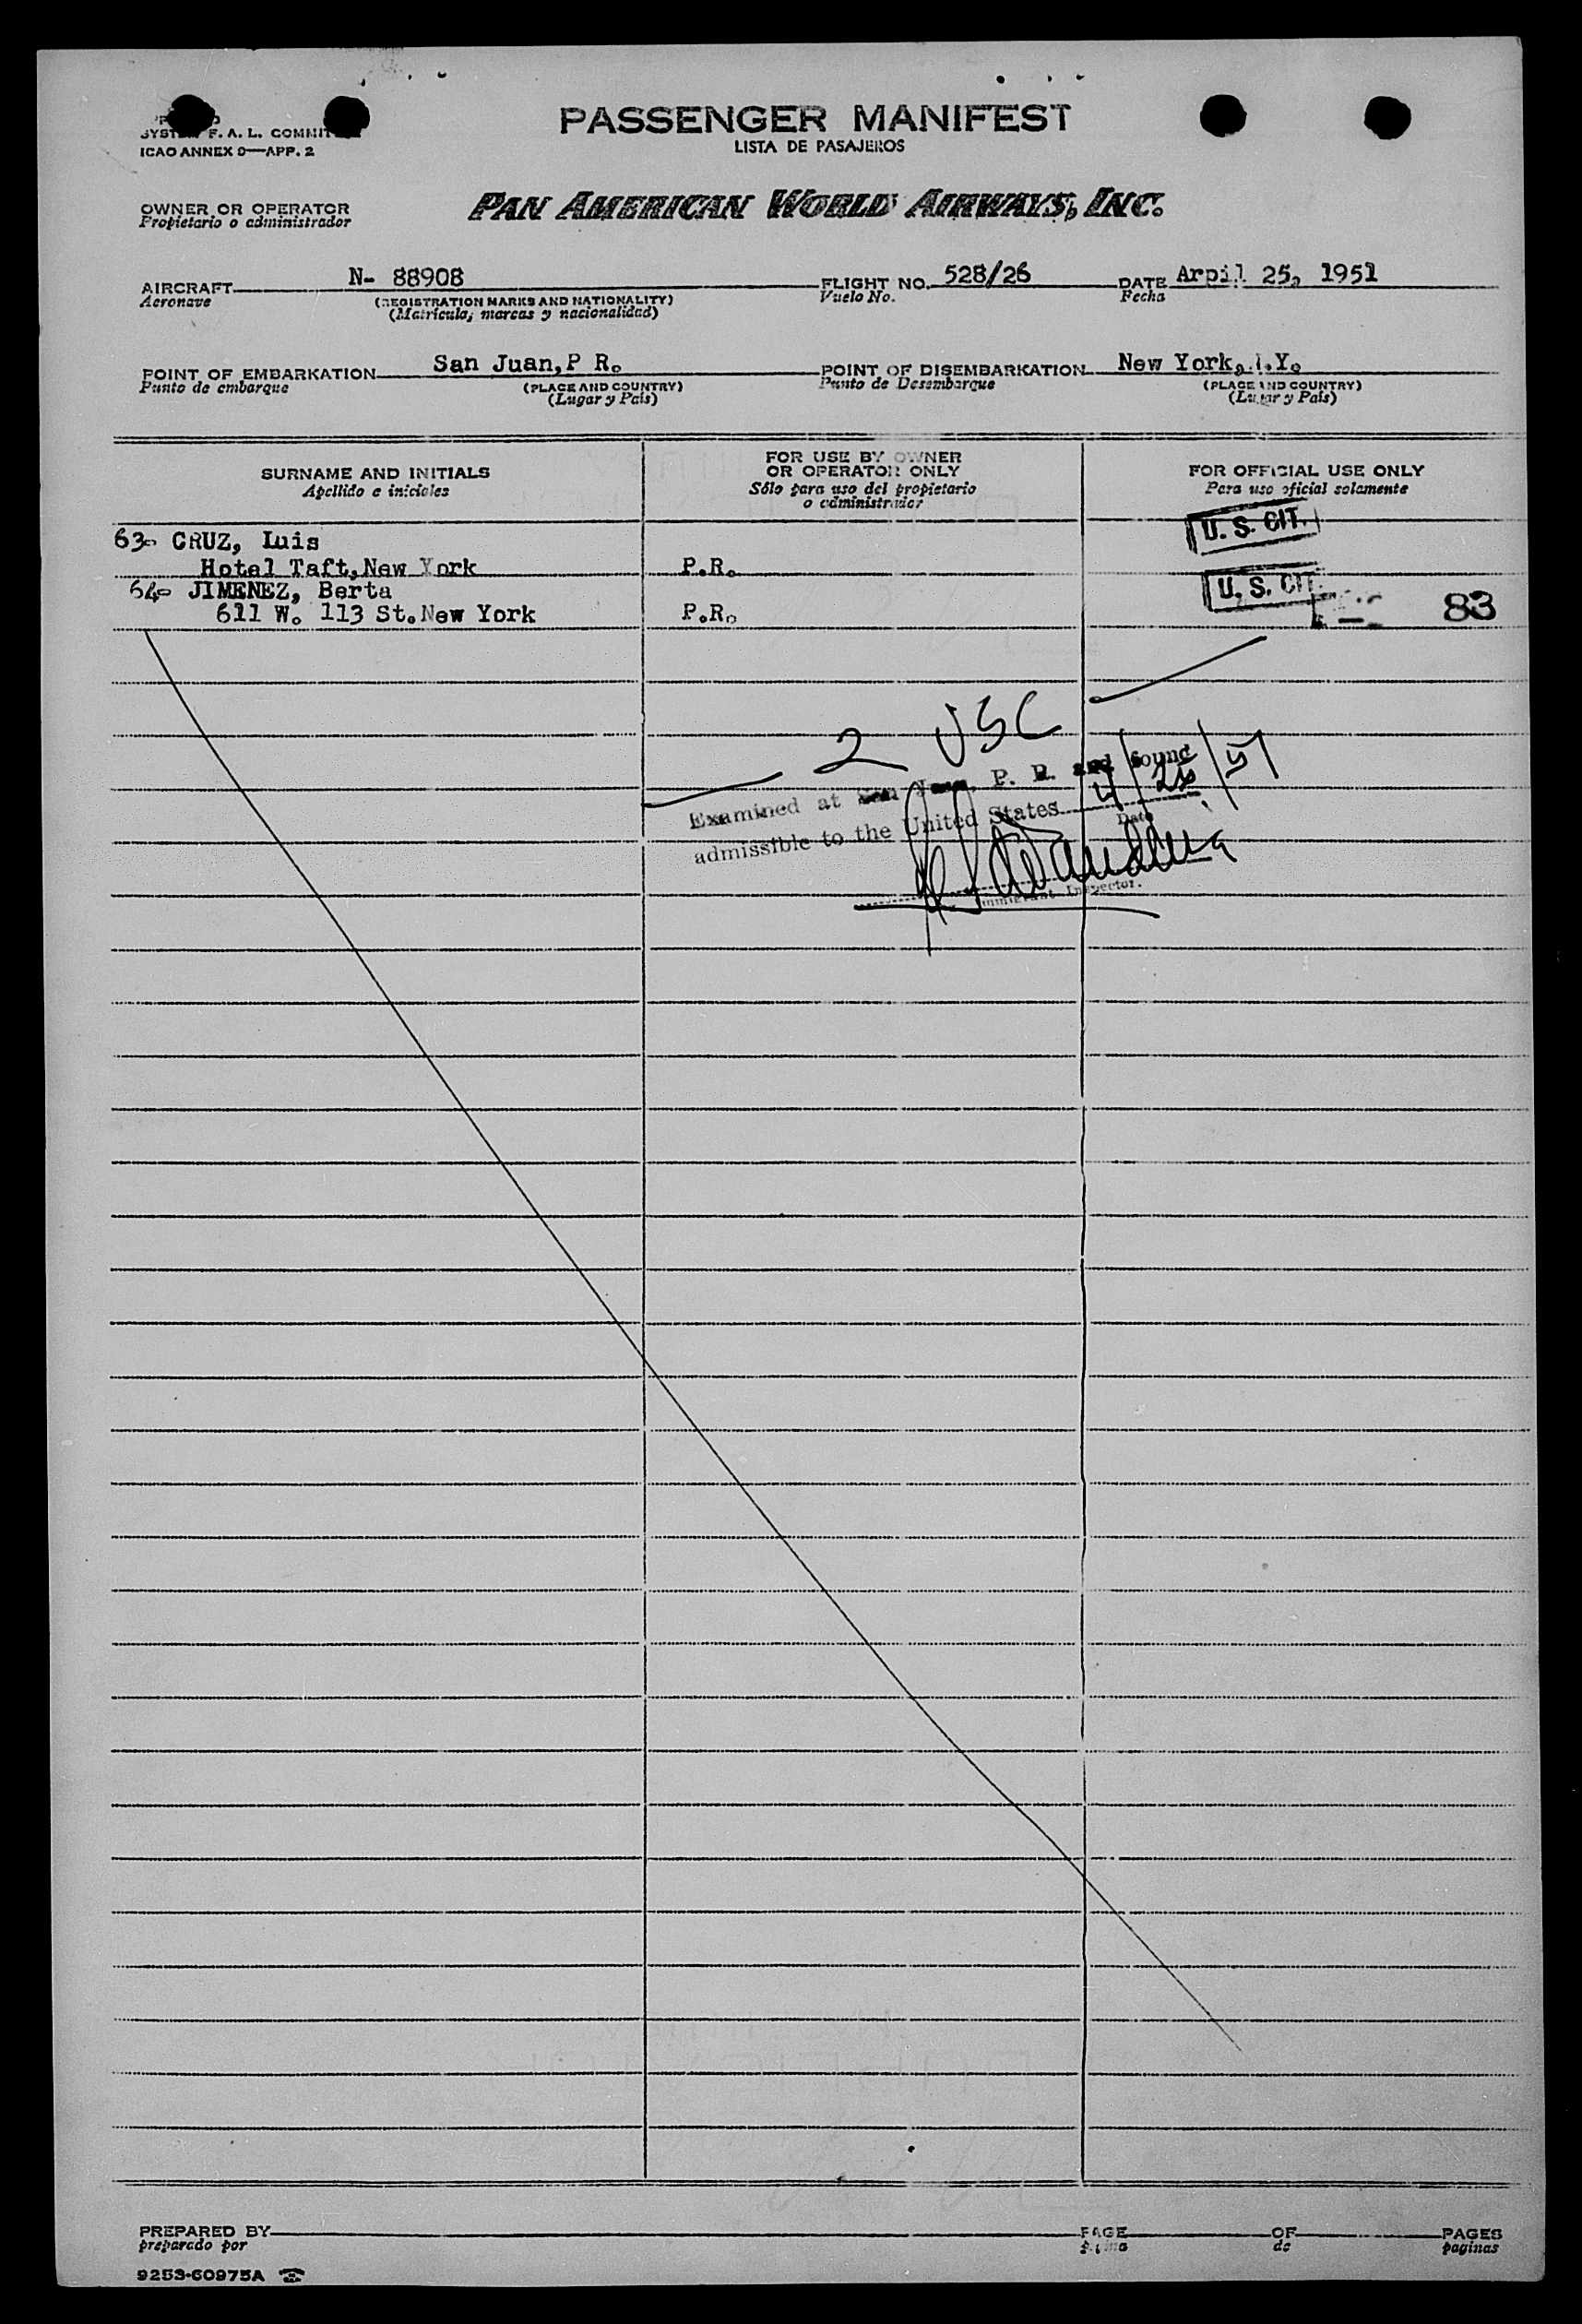 PASSENGER MANIFEST
LISTA DE PASAJEROS
F. A. L.
ICAO ANNEX 9—APP. 2
OWNER OR OPERATOR
Propietario o administrador
PAN AMERICAN WORLD AIRWAYS, INC.
AIRCRAFT N- 88908 FLIGHT NO. 528/26 DATE Arpil 25, 1951
Aeronave (REGISTRATION MARKS AND NATIONALITY) Vuelo No. Fecha
(Matrícula, marcas y nacionalidad)
POINT OF EMBARKATION San Juan,P R. POINT OF DISEMBARKATION New York,
Punto de embarque (PLACE AND COUNTRY) Punto de Desembarque (PLACE AND COUNTRY)
(Lugar y País) (Lugar y País)
SURNAME AND INITIALS
Apellido e iniciales
FOR USE BY OWNER
OR OPERATOR ONLY
Sólo para uso del propietario
o administrador
FOR OFFICIAL USE ONLY
Para uso oficial solamente
63- CRUZ, Luis U. S. CIT.
Hotel Taft,New York P.R.
64- JIMENEZ, Berta U. S. CIT.
611 W. 113 St.New York P.R. 83
2 USC
Examined at San Juan, P. R. and found
admissible to the United States
Date
Immigrant Inspector.
PREPARED BY PAGE OF PAGES
preparado por página de paginas
9253-60975A